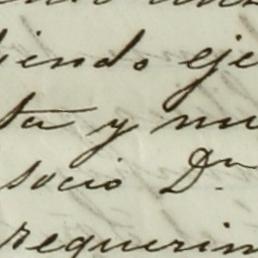 iendo eje
ta y nu
socio Dⁿ
requerim